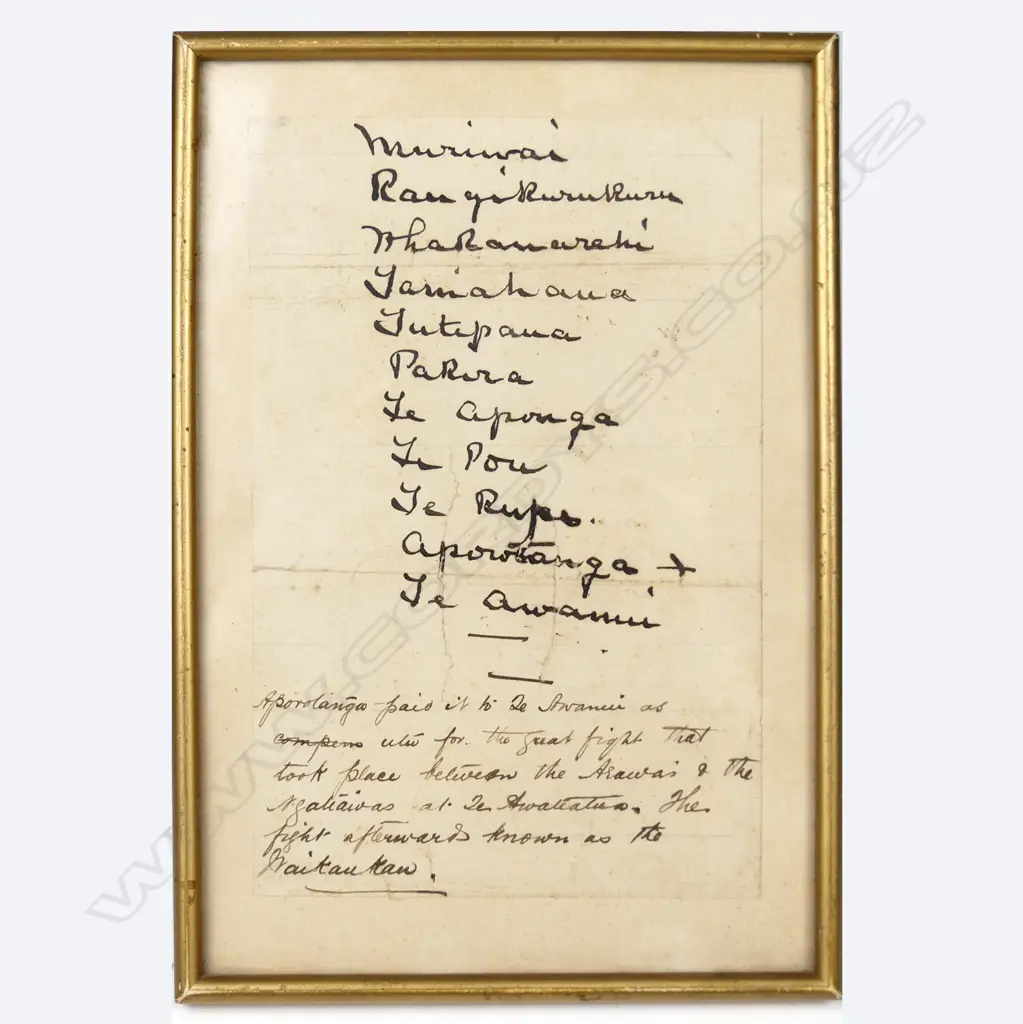 Muriwai
Rangikurukuru
Whakanarehi
Tamahana
Tutepana
Pakira
Te Aponga
Te Pou
Te Rupe.
Aporotanga +
Te Awanui
Aporotanga paid it to Te Awanui as
compens utu for the great fight that
took place between the Arawas & the
Ngatiawas at Te Awateatua. The
fight afterwards known as the
Kaikaukau.
WWW.CORDYS.CO.NZ